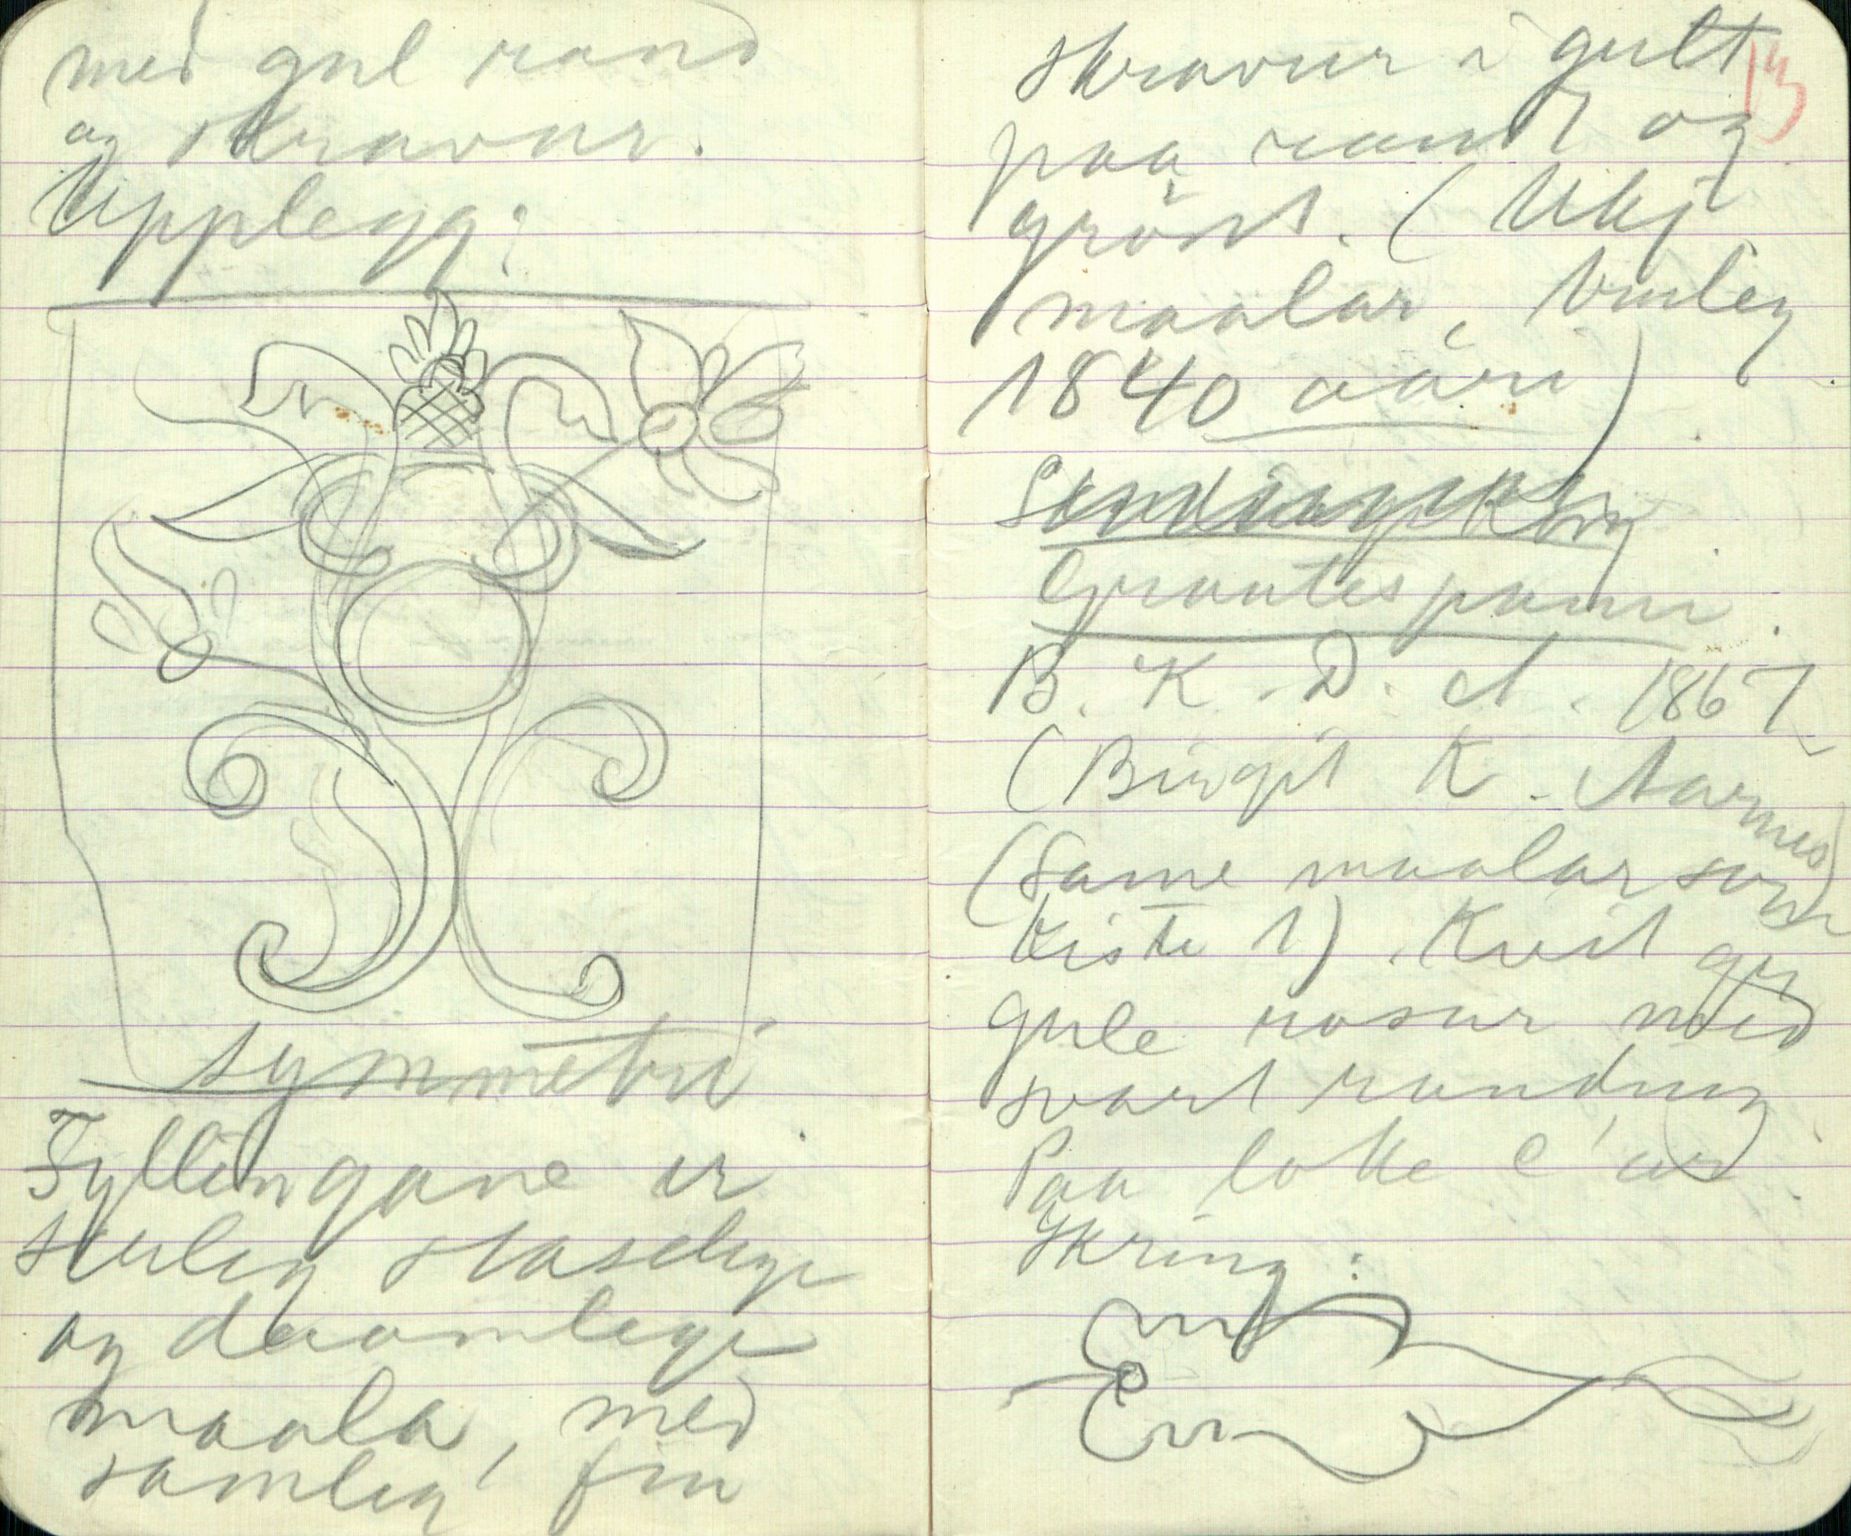 med gul rand
og skravur.
Upplegg:
symmetri
Fyllingane er
sulig staselege
og draamlege
maala, med
samleg fin
skravur i gult
13
paa raudt og
grönt. (Ukj
maalar, truleg
1840 aari)
Grautespann.
B. K. D. A. 1867
(Birgit K. Aarmes)
(Same maalar som
kiste 1). Kvit og
gule rosur med
svart randing
Paa loke e' ei
Kring: